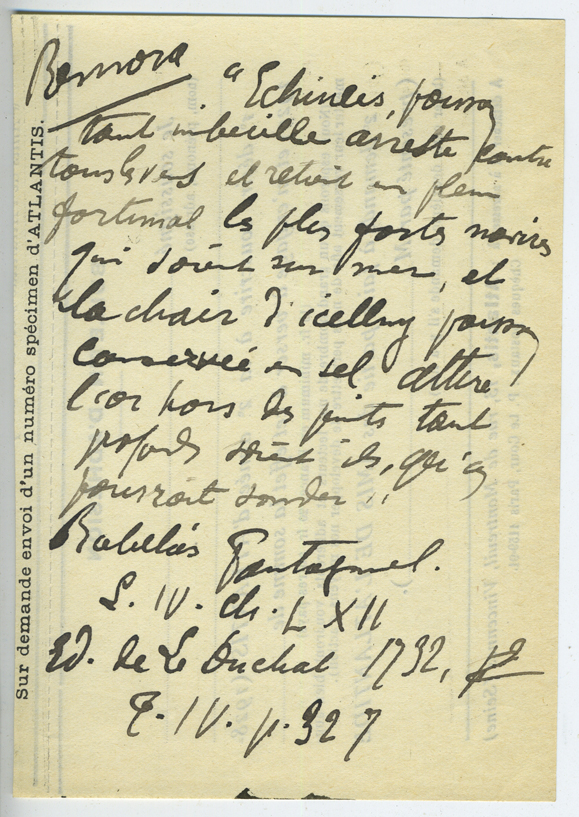 Remora
" Echineis, poisson
tant imbecille arreste contre
tous les vens et retient en plein
fortunal les plus fortes navires
qui soient sur mer, et
la chair d'icelluy poisson
conservée en sel attire
l'or hors des puits tant
profonds soient ils, qu'on
pourroit sonder "
Rabelais Pantagruel.
L. IV. Ch. LXII
Ed. de Le Duchat 1732,
T. IV. p. 327
Sur demande envoi d'un numéro spécimen d'ATLANTIS.